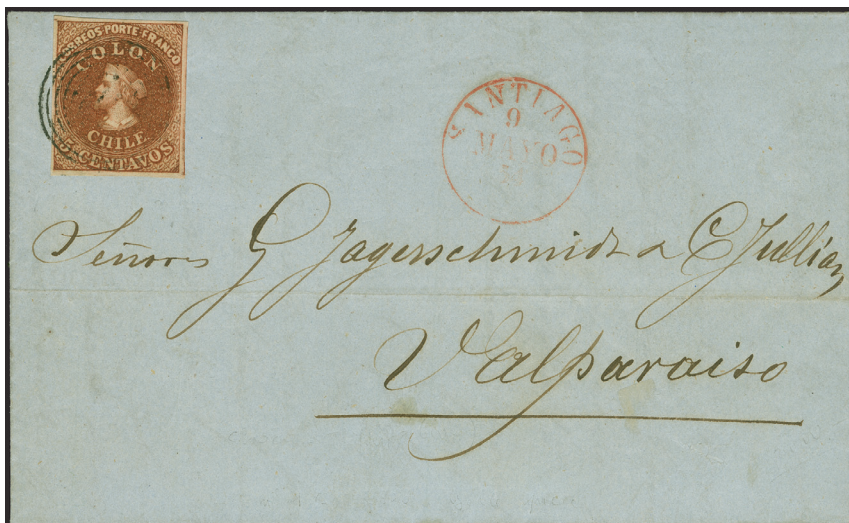 CORREOS PORTE FRANCO
COLON
CHILE
5 CENTAVOS
SANTIAGO
9
MAYO
Señores G Jagerschmidt a C Jullian
Valparaiso